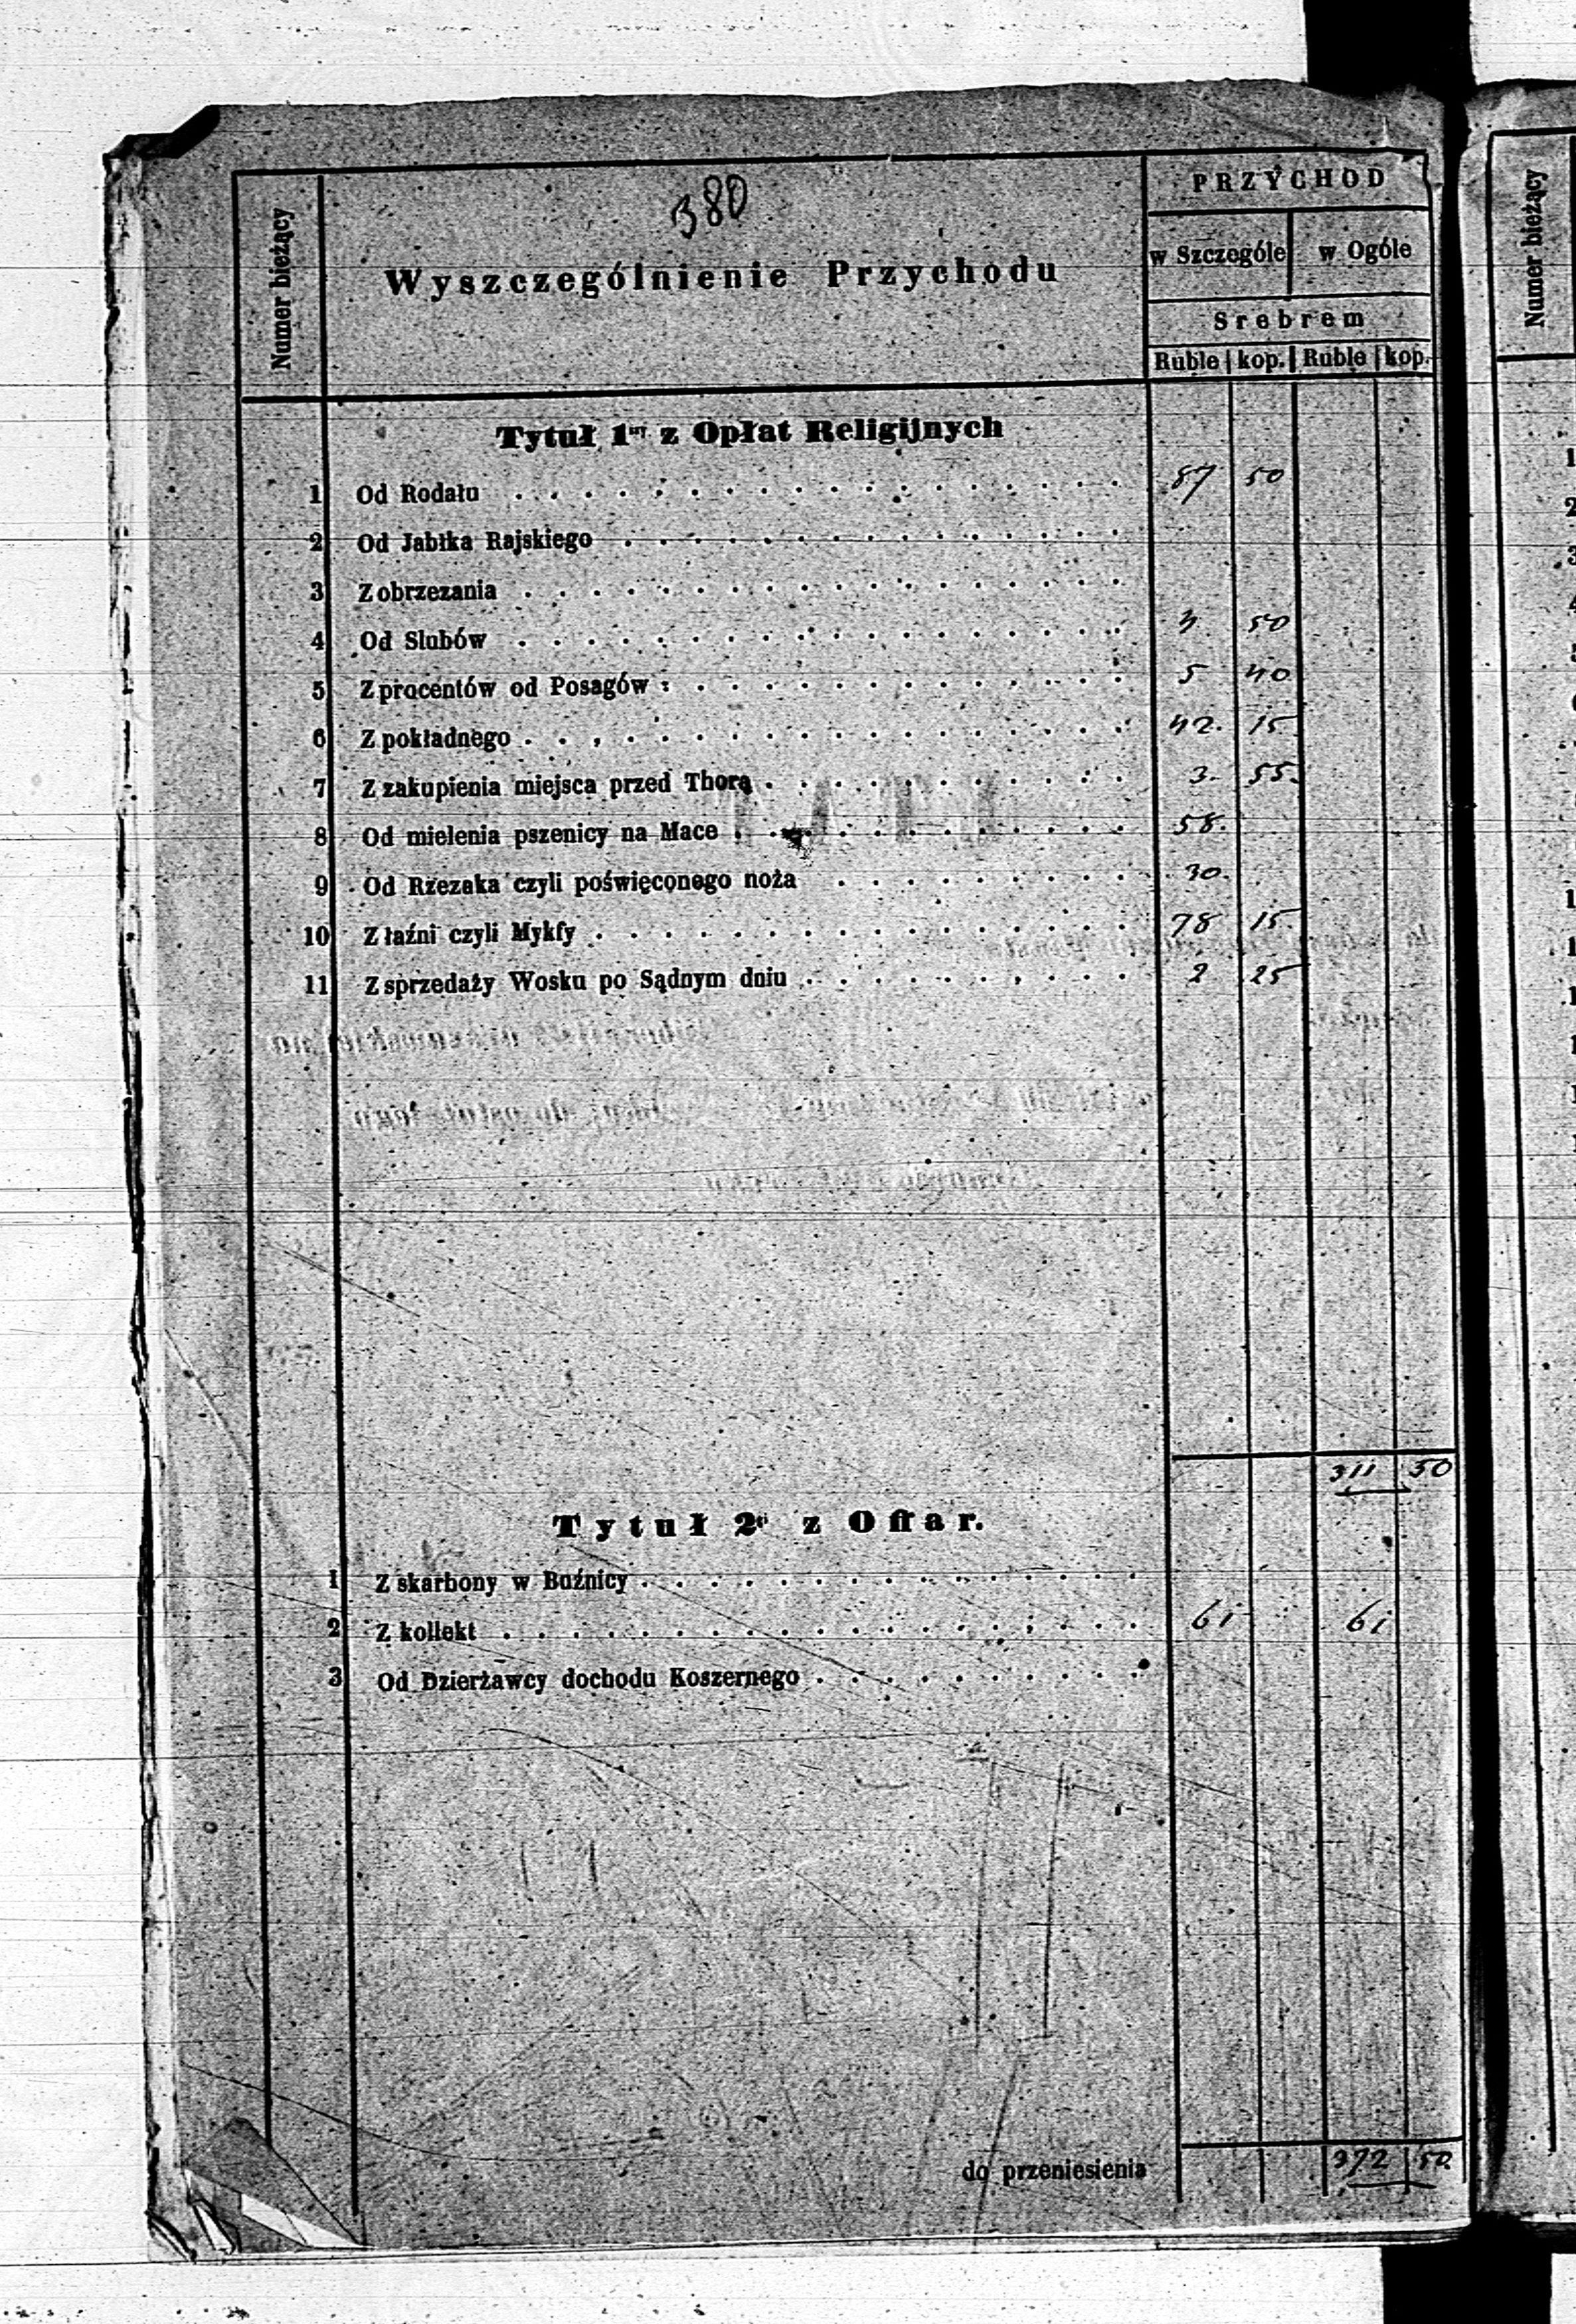 380
Numer bieżący
Wyszczególnienie Przychodu
PRZYCHOD
w Szczególe w Ogóle
Srebrem
Ruble kop. Ruble kop.
Tytuł 1szy z Opłat Religijnych
1 Od Rodału 87 50
2 Od Jabłka Rajskiego
3 Z obrzezania
4 Od Slubów 4 50
5 Z procentów od Posagów 5 40
6 Z pokładnego 42 15
7 Z zakupienia miejsca przed Thorą 3 55
8 Od mielenia pszenicy na Mace 58
9 Od Rzezaka czyli poświęconego noża 30
10 Z łaźni czyli Mykfy 78 15
11 Z sprzedaży Wosku po Sądnym dniu 2 25
311 50
Tytuł 2gi z Ofiar.
1 Z skarbony w Buźnicy
2 Z kollekt 61 61
3 Od Dzierżawcy dochodu Koszernego
do przeniesienia 372 50
Numer bieżący